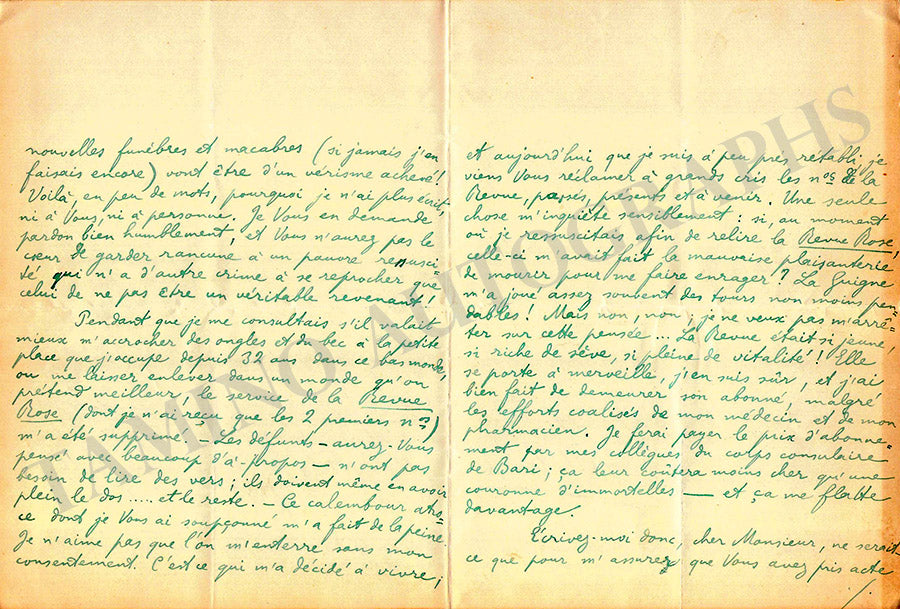 nouvelles funèbres et macabres (si jamais j'en
faisais encore) vont être d'un vérisme achevé!
Voilà, en peu de mots, pourquoi je n'ai plus écrit,
ni à Vous, ni à personne. Je Vous en demande
pardon bien humblement, et Vous n'aurez pas le
cœur de garder rancune à un pauvre ressusci-
té qui n'a d'autre crime à se reprocher que
celui de ne pas être un véritable revenant!
Pendant que je me consultais, s'il valait
mieux m'accrocher des ongles et du bec à la petite
place que j'occupe depuis 32 ans dans ce bas monde,
ou me laisser enlever dans un monde qu'on
prétend meilleur, le service de la Revue
Rose (dont je n'ai reçu que les 2 premiers nos)
m'a été supprimé. — Les défunts — aurez-Vous
pensé avec beaucoup d'à-propos — n'ont pas
besoin de lire des vers; ils doivent même en avoir
plein le dos ..... et le reste. — Ce calembour atro-
ce dont je Vous ai soupçonné m'a fait de la peine.
Je n'aime pas que l'on m'enterre sans mon
consentement. C'est ce qui m'a décidé à vivre;
et aujourd'hui que je suis à peu près rétabli, je
viens Vous réclamer à grands cris les nos de la
Revue, passés, présents et à venir. Une seule
chose m'inquiète sensiblement: si, au moment
où je ressuscitais afin de relire la Revue Rose,
celle-ci m'avait fait la mauvaise plaisanterie
de mourir pour me faire enrager? La Guigne
m'a joué assez souvent des tours non moins pen-
dables! Mais non, non; je ne veux pas m'arrê-
ter sur cette pensée... La Revue était si jeune,
si riche de sève, si pleine de vitalité! Elle
se porte à merveille, j'en suis sûr, et j'ai
bien fait de demeurer son abonné, malgré
les efforts coalisés de mon médecin et de mon
pharmacien. Je ferai payer le prix d'abonne-
ment par mes collègues du corps consulaire
de Bari; ça leur coûtera moins cher qu'une
couronne d'immortelles — et ça me flatte
davantage.
Ecrivez-moi donc, cher Monsieur, ne serait-
ce que pour m'assurer que Vous avez pris acte
./.
TAMINO AUTOGRAPHS